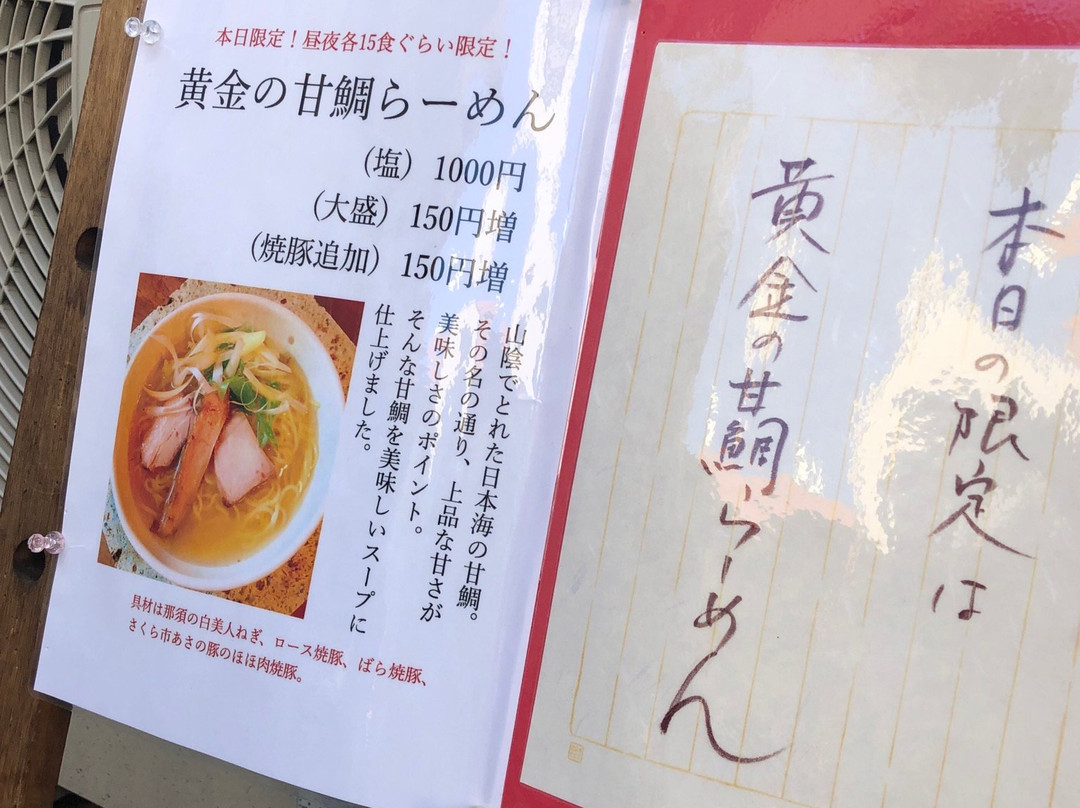 本日限定!昼夜各15食ぐらい限定!
黄金の甘鯛らーめん
(塩) 1000円
(大盛) 150円増
(焼豚追加) 150円増
山陰でとれた日本海の甘鯛。
その名の通り、上品な甘さが
美味しさのポイント。
そんな甘鯛を美味しいスープに
仕上げました。
具材は那須の白美人ねぎ、ロース焼豚、ばら焼豚、
さくら市あさの豚のほほ肉焼豚。
本日の限定は
黄金の甘鯛らーめん